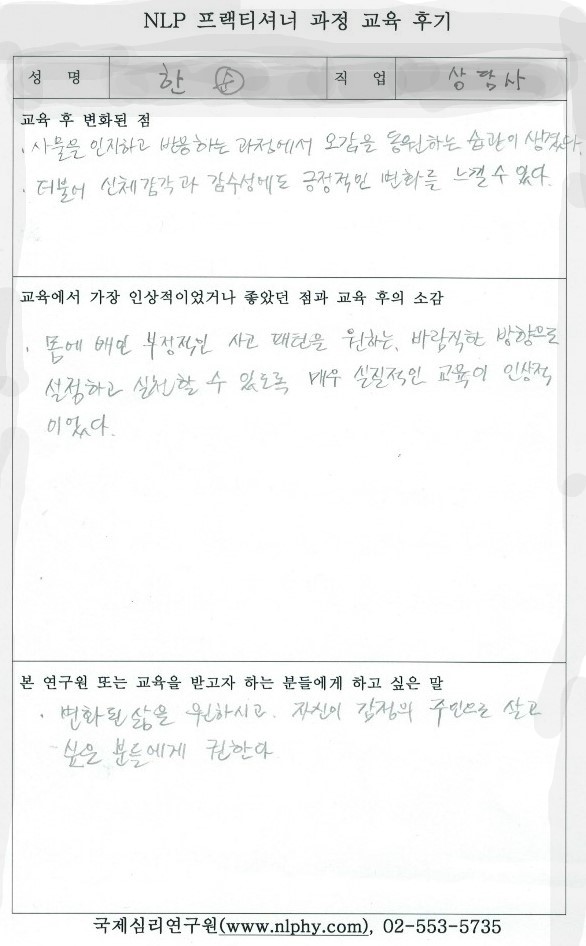 NLP 프랙티셔너 과정 교육 후기
성 명 한 순 직 업 상담사
교육 후 변화된 점
. 사물을 인지하고 반응하는 과정에서 오감을 동원하는 습관이 생겼다.
. 더불어 신체감각과 감수성에도 긍정적인 변화를 느낄 수 있다.
교육에서 가장 인상적이었거나 좋았던 점과 교육 후의 소감
. 몸에 배인 부정적인 사고 패턴을 원하는, 바람직한 방향으로
설정하고 실천할 수 있도록 매우 실질적인 교육이 인상적
이었다.
본 연구원 또는 교육을 받고자 하는 분들에게 하고 싶은 말
. 변화된 삶을 원하시고, 자신이 감정의 주인으로 살고
싶은 분들에게 권한다
국제심리연구원(www.nlphy.com), 02-553-5735